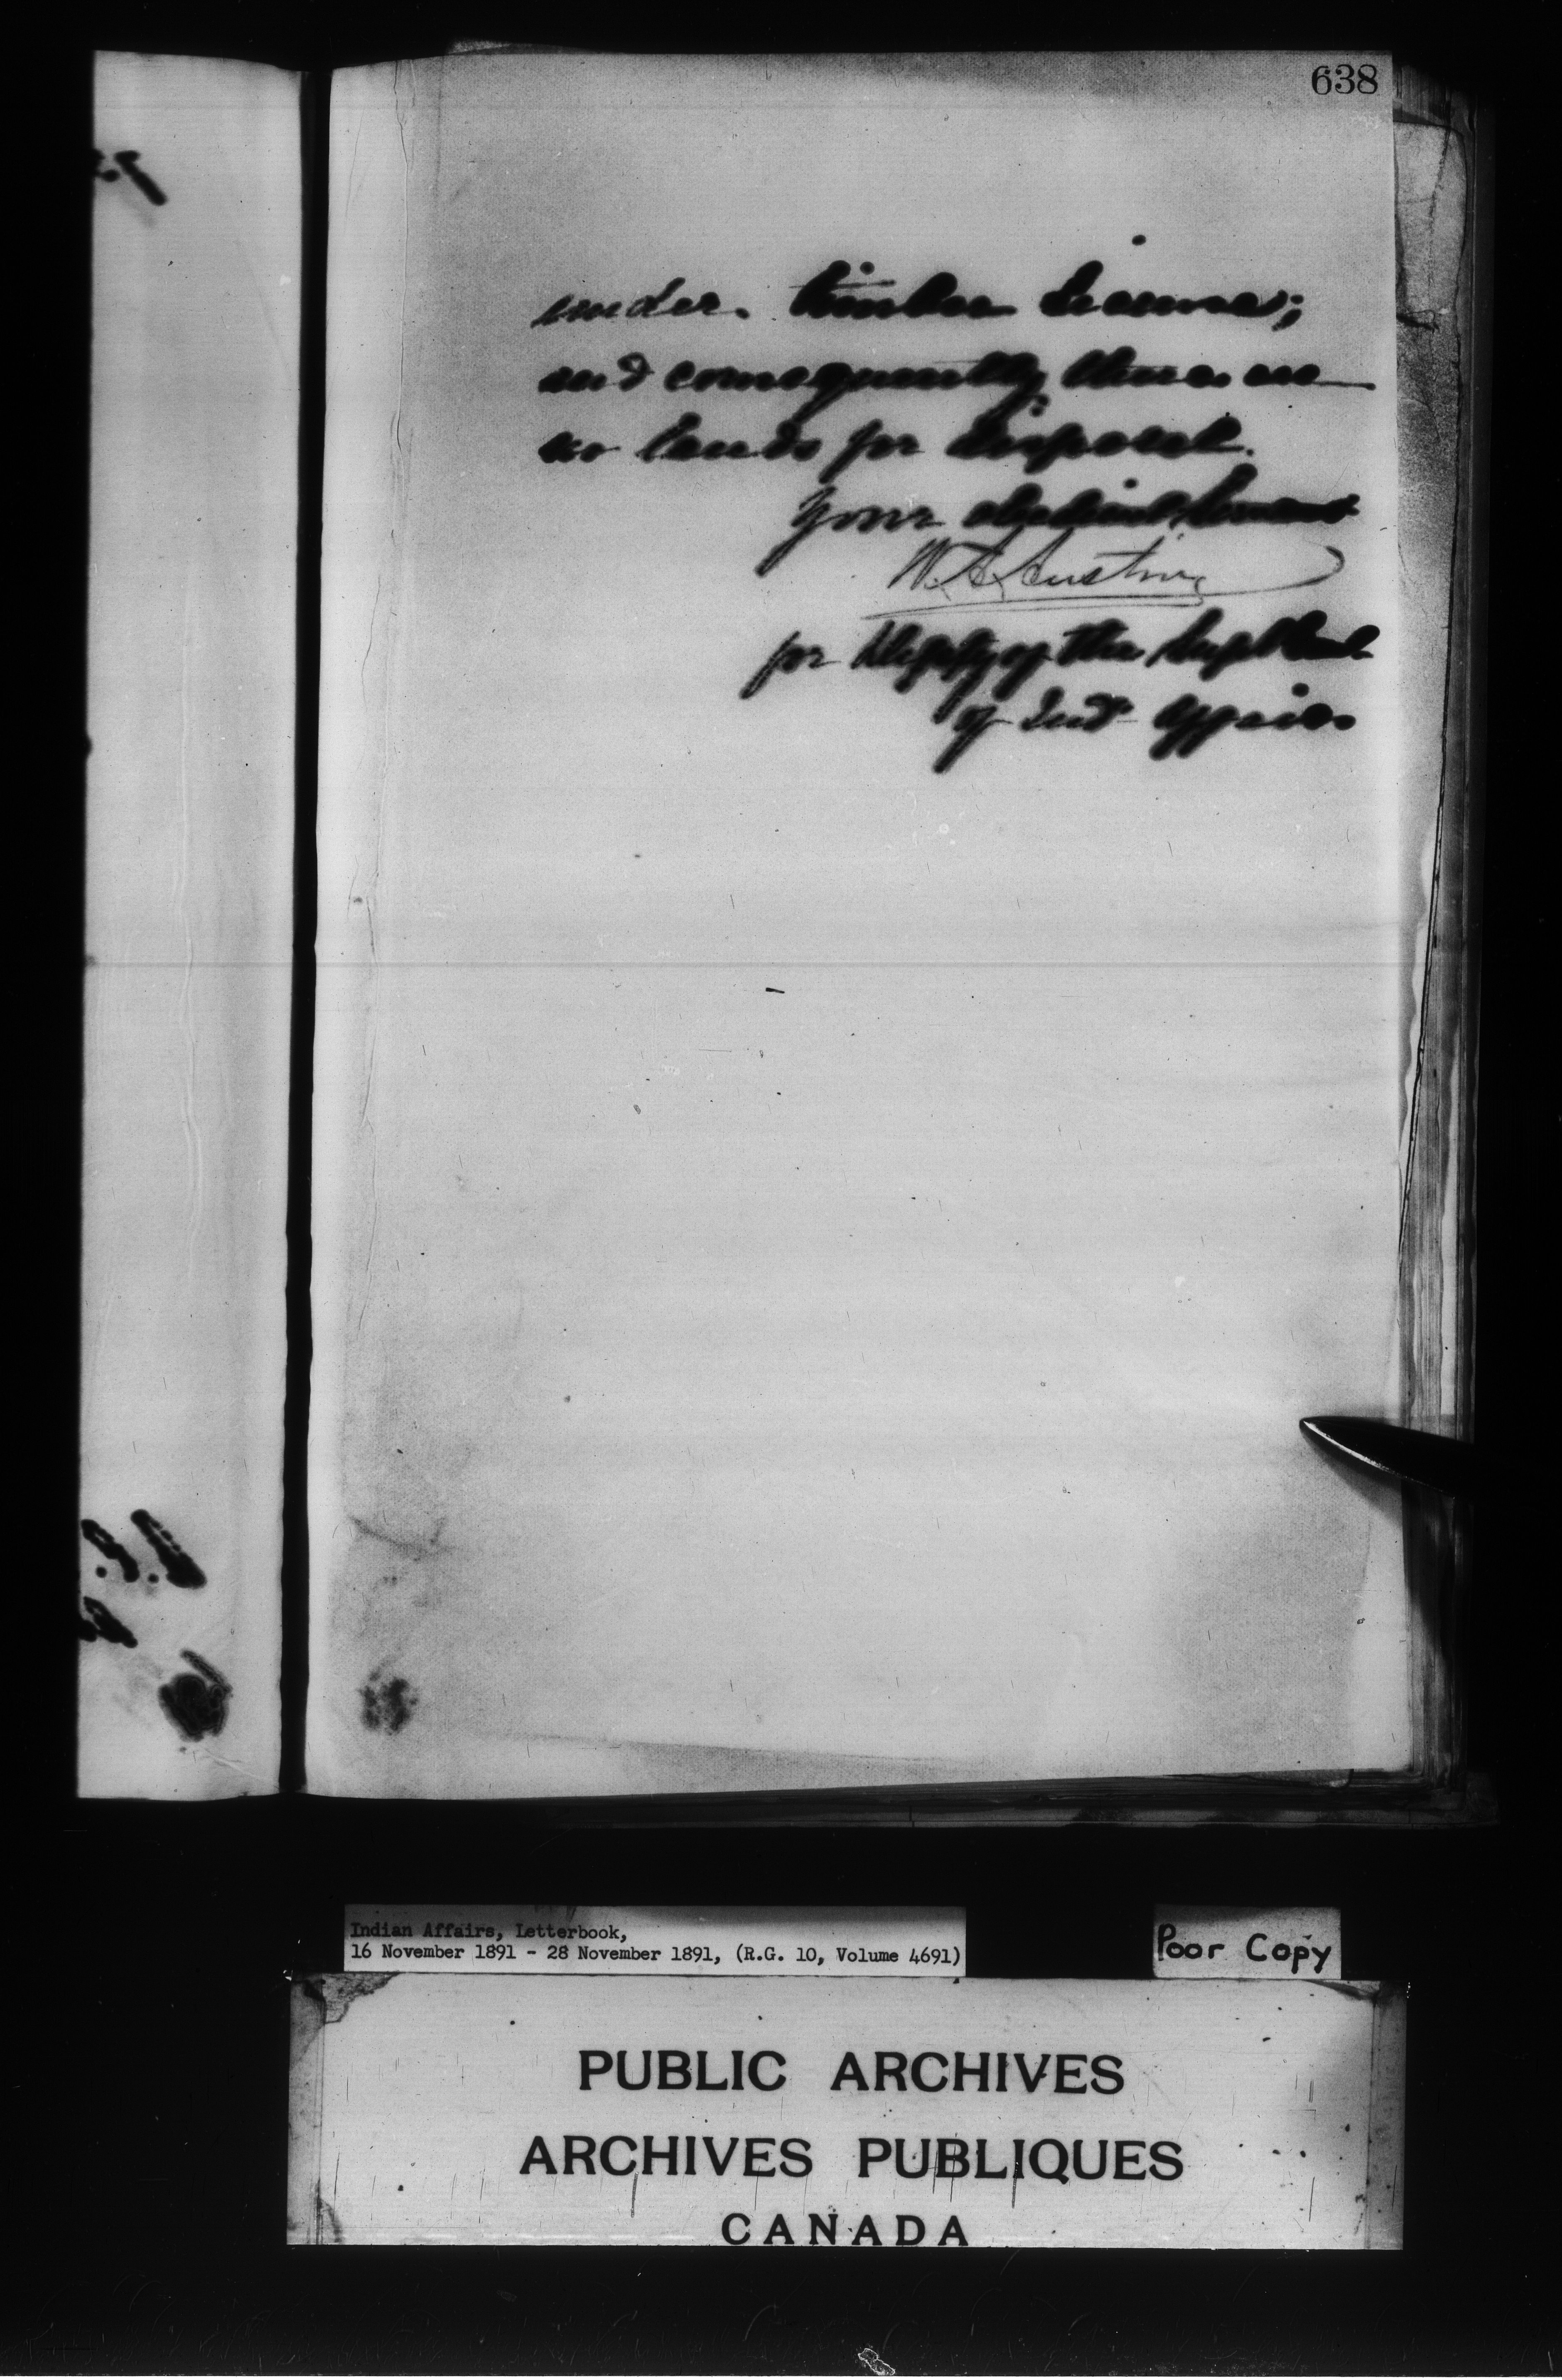 638
under timber license;
and consequently there are
no lands for disposal.
Your obedient servant
W. A. Austin
for Deputy of the Supt Genl
of Indn Affairs
Indian Affairs, Letterbook,
16 November 1891 - 28 November 1891, (R.G. 10, Volume 4691)
Poor Copy
PUBLIC ARCHIVES
ARCHIVES PUBLIQUES
CANADA